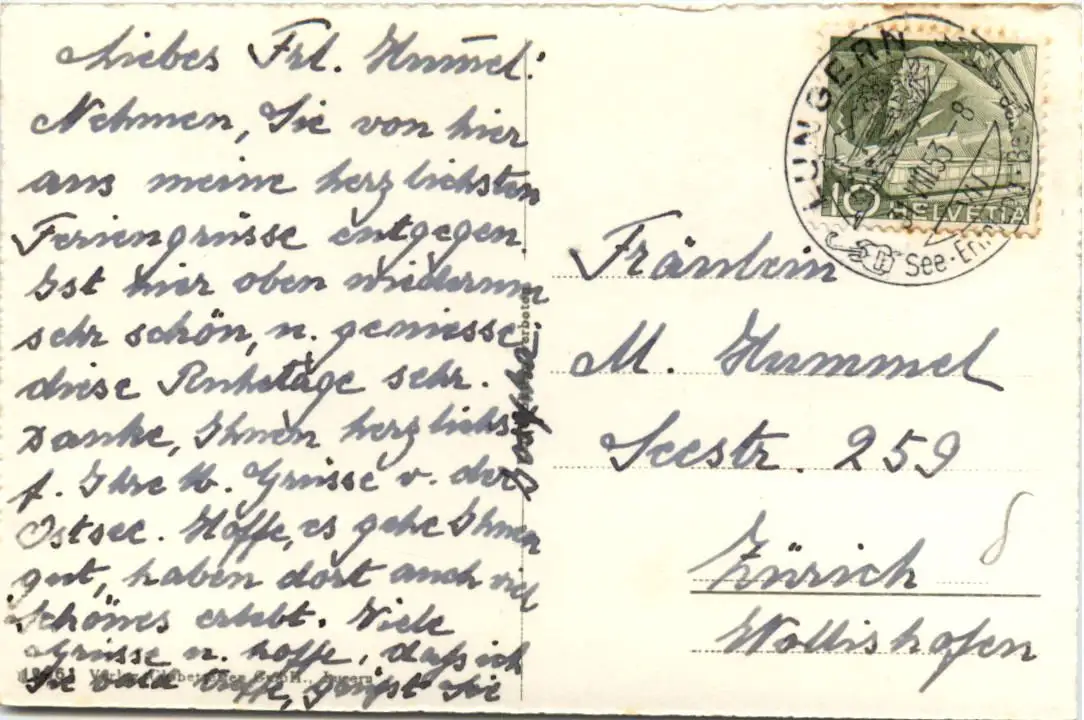 Liebes Frl. Hummel!
Nehmen, Sie von hier
aus meine herzlichsten
Feriengrüsse entgegen.
Ist hier oben wiederum
sehr schön, u. geniesse
diese Ruhetage sehr.
Danke, Ihnen herzlichst
f. Ihre lb. Grüsse v. der
Ostsee. Hoffe, es gehe Ihnen
gut, haben dort auch viel
Schönes erlebt. Viele
Grüsse u. hoffe, dass ich
Sie bald treffe, grüsst Sie
verboten
Verlag Globetrotter GmbH., Luzern
LUNGERN
VIII.53 - 8
See
10 HELVETIA
Fräulein
M. Hummel
Seestr. 259
Zürich
Wollishofen